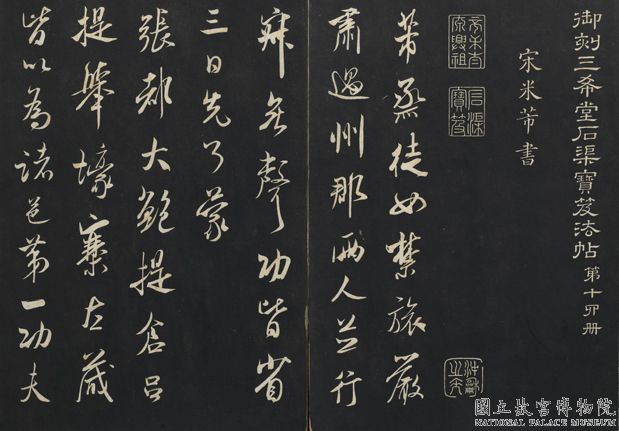 御刻三希堂石渠寶笈法帖 第十四册
宋米芾書
石渠
寶笈
芾烝徒如禁旅嚴
肅過州郡兩人並行
寂無聲功皆省
三日先了蒙
張都大鮑提倉呂
提舉壕寨左藏
皆以為諸邑第一功夫
國立故宮博物院
NATIONAL PALACE MUSEUM